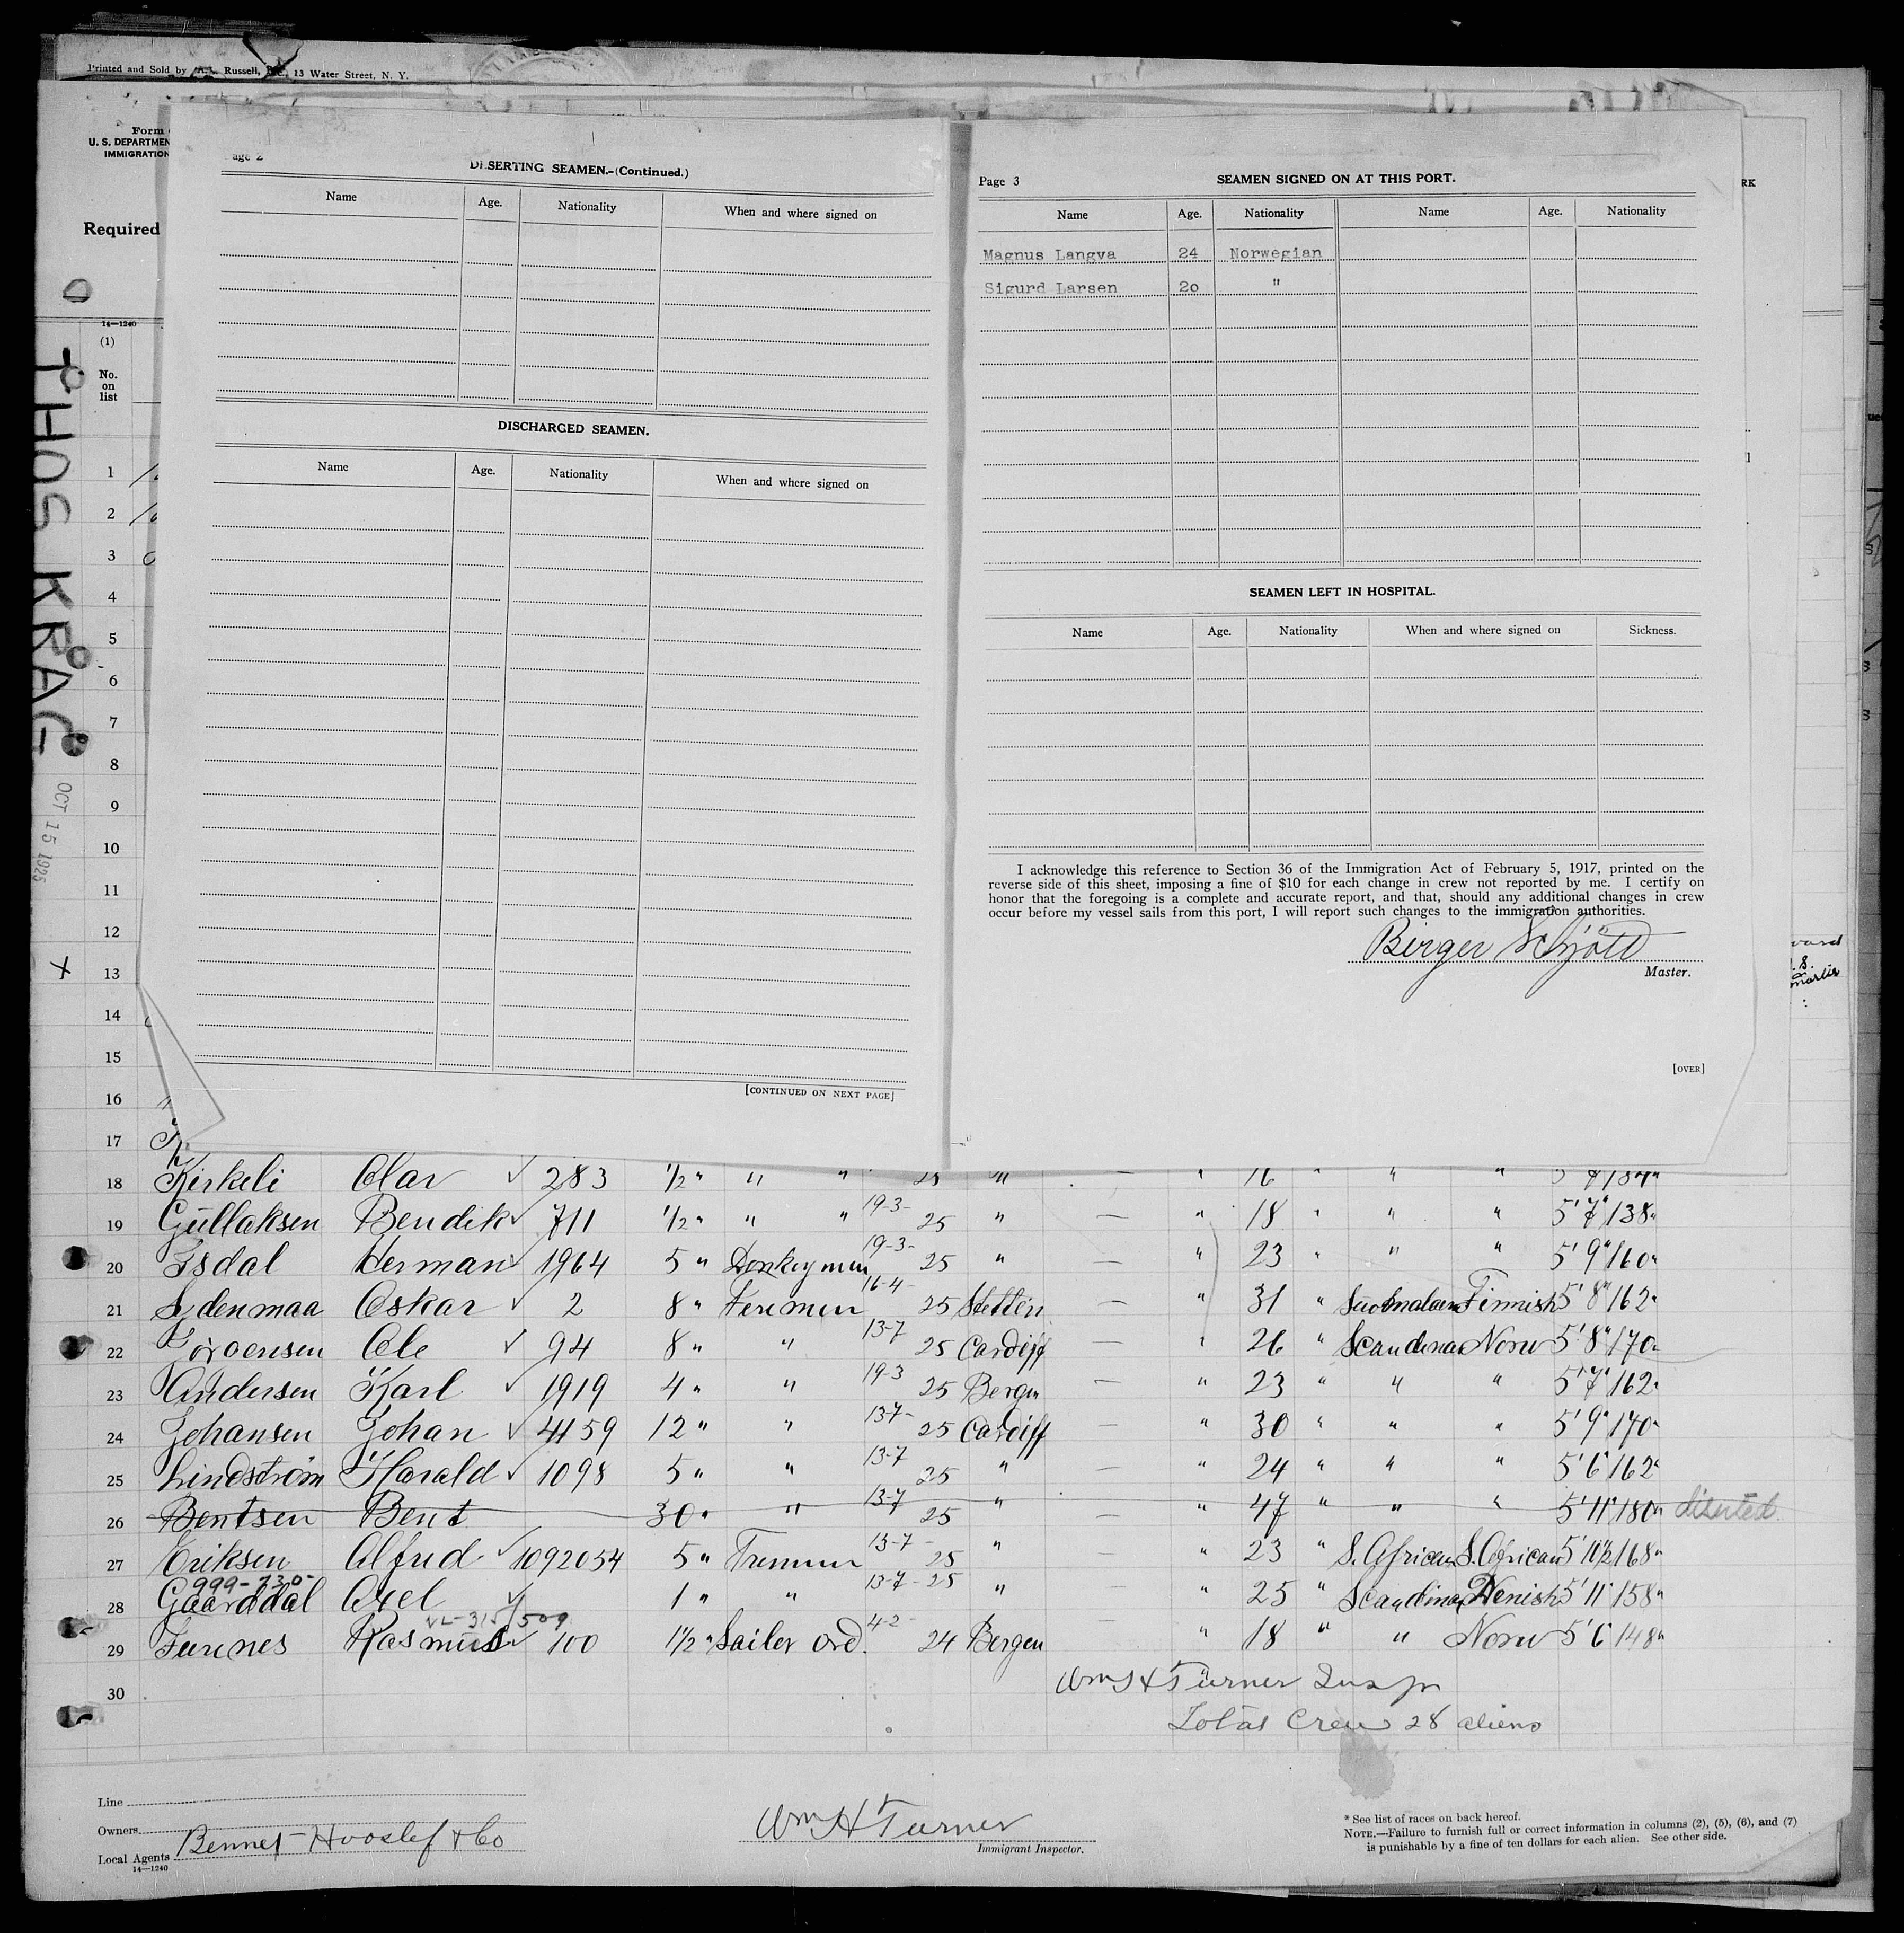 Printed and Sold by A.L. Russell, 13 Water Street, N. Y.
Form
U. S. DEPARTMEN
IMMIGRATION
Required
14—1240
(1)
No.
on
list
THOS KRAG
OCT 15 1925
RK
age 2
DESERTING SEAMEN.-(Continued.)
Name Age. Nationality When and where signed on
DISCHARGED SEAMEN.
Name Age. Nationality When and where signed on
[CONTINUED ON NEXT PAGE]
Page 3
SEAMEN SIGNED ON AT THIS PORT.
Name Age. Nationality Name Age. Nationality
Magnus Langva 24 Norwegian
Sigurd Larsen 20 "
SEAMEN LEFT IN HOSPITAL.
Name Age. Nationality When and where signed on Sickness.
I acknowledge this reference to Section 36 of the Immigration Act of February 5, 1917, printed on the
reverse side of this sheet, imposing a fine of $10 for each change in crew not reported by me. I certify on
honor that the foregoing is a complete and accurate report, and that, should any additional changes in crew
occur before my vessel sails from this port, I will report such changes to the immigration authorities.
Birger Schjött
Master.
[OVER]
1
2
3
4
5
6
7
8
9
10
11
12
X 13
14
15
16
17
18 Kirkeli Olav ✓ 283 1/2 " " " 25 " — " 16 " " " 5' 7" 134"
19 Gullaksen Bendik ✓ 711 1/2 " " " 19-3- 25 " — " 18 " " " 5' 7" 138"
20 Isdal Herman ✓ 1964 5 " Donkeyman 19-3- 25 " — " 23 " " " 5' 9" 160"
21 Sydenmaa Oskar ✓ 2 8 " Firemen 16-4- 25 Stettin — " 31 " Finnish 5' 8" 162"
22 Jörgensen Ole ✓ 94 8 " " 13-7 25 Cardiff — " 26 " Scandinav Norw 5' 8" 170"
23 Andersen Karl ✓ 1919 4 " " 19-3 25 Bergen — " 23 " " " 5' 7" 162"
24 Johansen Johan ✓ 4159 12 " " 13-7- 25 Cardiff — " 30 " " " 5' 9" 170"
25 Lindström Harald ✓ 1098 5 " " 13-7 25 " — " 24 " " " 5' 6" 162"
26 Bentsen Bent 30 " " 13-7 25 " — " 47 " " " 5' 11" 180" diserted
27 Eriksen Alfred ✓ 1092054 5 " Trimmer 13-7- 25 " — " 23 " S. African S. African 5' 10 1/2 168"
999-730-
28 Gaarddal Axel ✓ 1 " " 13-7-25 " — " 25 " Scandinav Denish 5' 11" 158"
VL-315/509
29 Furnes Rasmus ✓ 100 1 1/2 " Sailer ord. 4-2- 24 Bergen — " 18 " " Norw 5' 6" 148"
30
Wm H Turner Insp
Total Crew 28 aliens
Line
Owners
Local Agents Bennet Hvoslef & Co
14—1240
Wm H Turner
Immigrant Inspector.
* See list of races on back hereof.
NOTE.—Failure to furnish full or correct information in columns (2), (5), (6), and (7)
is punishable by a fine of ten dollars for each alien. See other side.